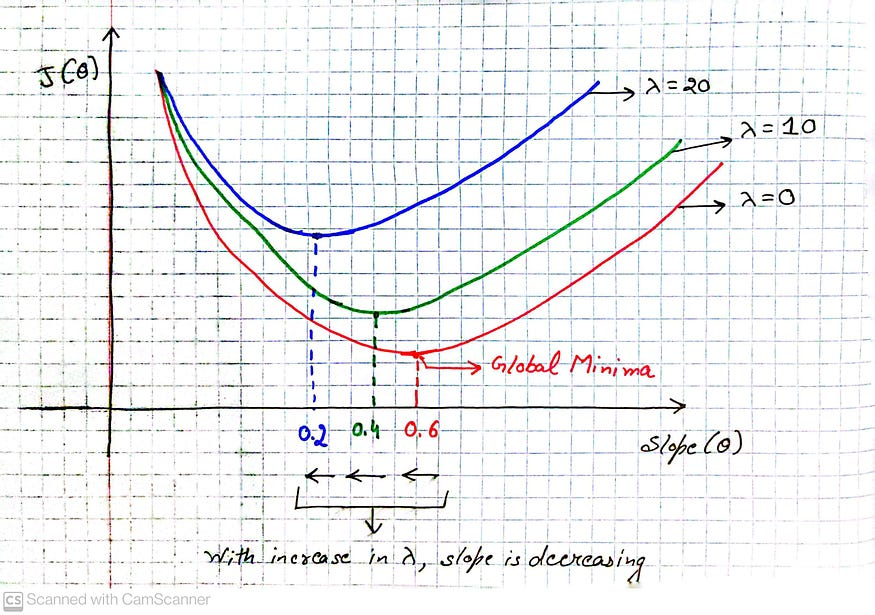 J(θ)
λ=20
λ=10
λ=0
Global Minima
0.2 0.4 0.6
Slope(θ)
With increase in λ, slope is decreasing
CS Scanned with CamScanner